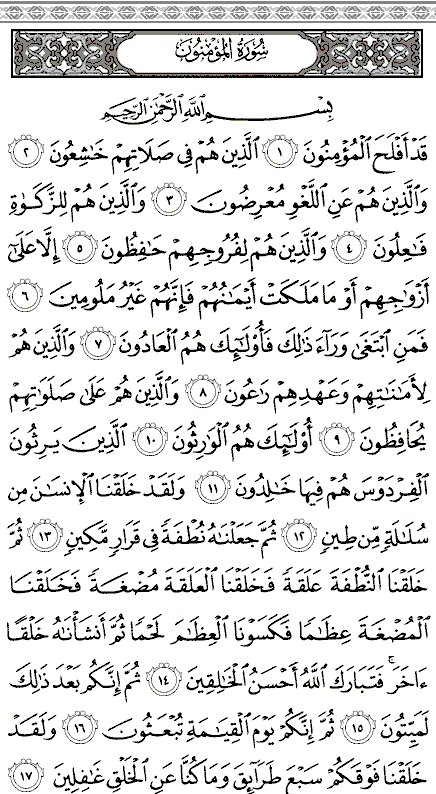 سُورَةُ المُؤْمِنُونَ
بِسْمِ اللَّهِ الرَّحْمَٰنِ الرَّحِيمِ
قَدْ أَفْلَحَ الْمُؤْمِنُونَ ١ الَّذِينَ هُمْ فِي صَلَاتِهِمْ خَاشِعُونَ ٢
وَالَّذِينَ هُمْ عَنِ اللَّغْوِ مُعْرِضُونَ ٣ وَالَّذِينَ هُمْ لِلزَّكَوٰةِ
فَاعِلُونَ ٤ وَالَّذِينَ هُمْ لِفُرُوجِهِمْ حَافِظُونَ ٥ إِلَّا عَلَىٰ
أَزْوَاجِهِمْ أَوْ مَا مَلَكَتْ أَيْمَانُهُمْ فَإِنَّهُمْ غَيْرُ مَلُومِينَ ٦
فَمَنِ ابْتَغَىٰ وَرَآءَ ذَٰلِكَ فَأُولَٰئِكَ هُمُ الْعَادُونَ ٧ وَالَّذِينَ هُمْ
لِأَمَانَاتِهِمْ وَعَهْدِهِمْ رَاعُونَ ٨ وَالَّذِينَ هُمْ عَلَىٰ صَلَوَاتِهِمْ
يُحَافِظُونَ ٩ أُولَٰئِكَ هُمُ الْوَارِثُونَ ١٠ الَّذِينَ يَرِثُونَ
الْفِرْدَوْسَ هُمْ فِيهَا خَالِدُونَ ١١ وَلَقَدْ خَلَقْنَا الْإِنسَانَ مِن
سُلَالَةٍ مِّن طِينٍ ١٢ ثُمَّ جَعَلْنَاهُ نُطْفَةً فِي قَرَارٍ مَّكِينٍ ١٣ ثُمَّ
خَلَقْنَا النُّطْفَةَ عَلَقَةً فَخَلَقْنَا الْعَلَقَةَ مُضْغَةً فَخَلَقْنَا
الْمُضْغَةَ عِظَامًا فَكَسَوْنَا الْعِظَامَ لَحْمًا ثُمَّ أَنشَأْنَاهُ خَلْقًا
ءَاخَرَ ۚ فَتَبَارَكَ اللَّهُ أَحْسَنُ الْخَالِقِينَ ١٤ ثُمَّ إِنَّكُم بَعْدَ ذَٰلِكَ
لَمَيِّتُونَ ١٥ ثُمَّ إِنَّكُمْ يَوْمَ الْقِيَامَةِ تُبْعَثُونَ ١٦ وَلَقَدْ
خَلَقْنَا فَوْقَكُمْ سَبْعَ طَرَآئِقَ وَمَا كُنَّا عَنِ الْخَلْقِ غَافِلِينَ ١٧